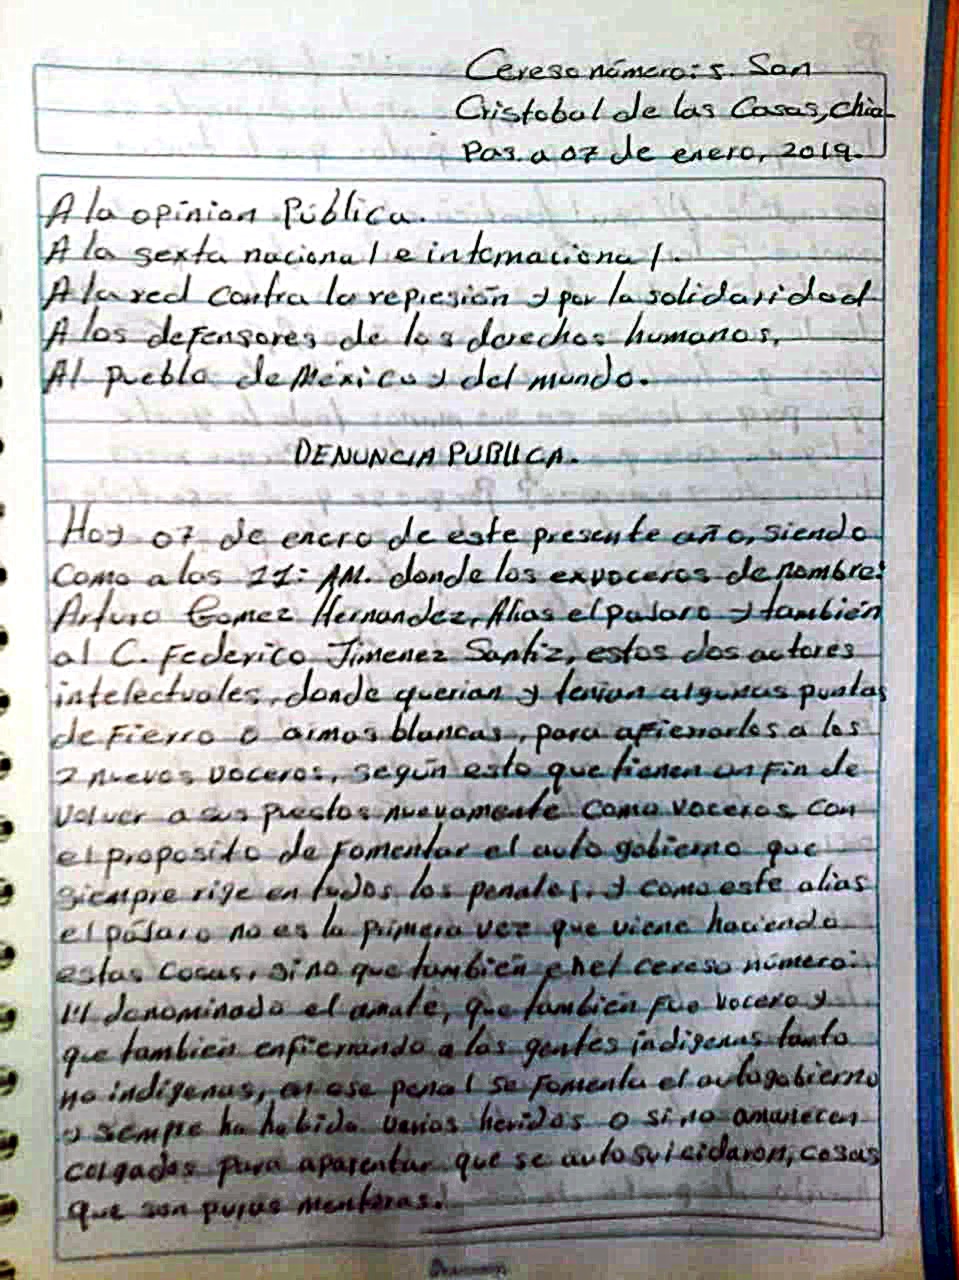 Cereso número: 5. San
Cristobal de las Casas, Chia-
Pas. a 07 de enero, 2019.
A la opinion Pública.
A la sexta naciona l e internaciona l.
A la red contra la represión y por la solidaridad
A los defensores de los derechos humanos.
Al pueblo de México y del mundo.
DENUNCIA PUBLICA.
Hoy 07 de enero de este presente año, siendo
Como a las 11: AM. donde los exvoceros de nombre:
Arturo Gomez Hernandez, Alias el pajaro y también
al C. Federico Jimenez Santiz, estos dos autores
intelectuales, donde querian y tenian algunas puntas
de Fierro o armas blancas, para afierrarlos a los
2 nuevos voceros, según esto que tienen un fin de
volver a sus puestos nuevamente como voceros con
el proposito de fomentar el auto gobierno que
siempre rige en todos los penales, y como este alias
el pájaro no es la primera vez que viene haciendo
estas cosas, si no que también en el cereso número:
14 denominado el amate, que también fue vocero y
que tambien enfierrando a las gentes indigenas tanto
no indígenas, en ese penal se fomenta el autogobierno
y siempre ha habido varios heridos o si no amanecen
colgados para aparentar que se auto suicidaron, cosas
que son puras mentiras.